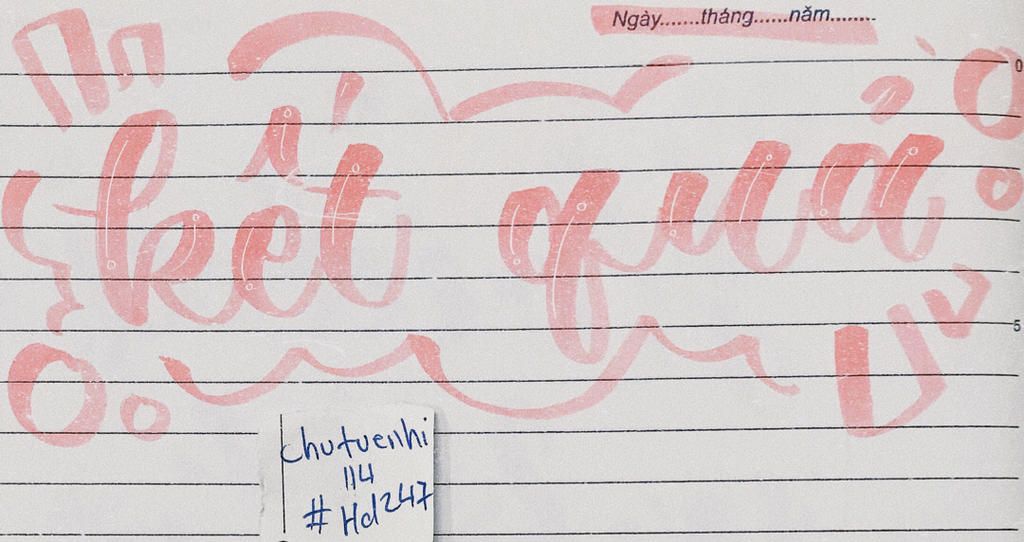 Ngày.......tháng......năm........
0
kết quả
5
chutuenhi
114
#Hd247